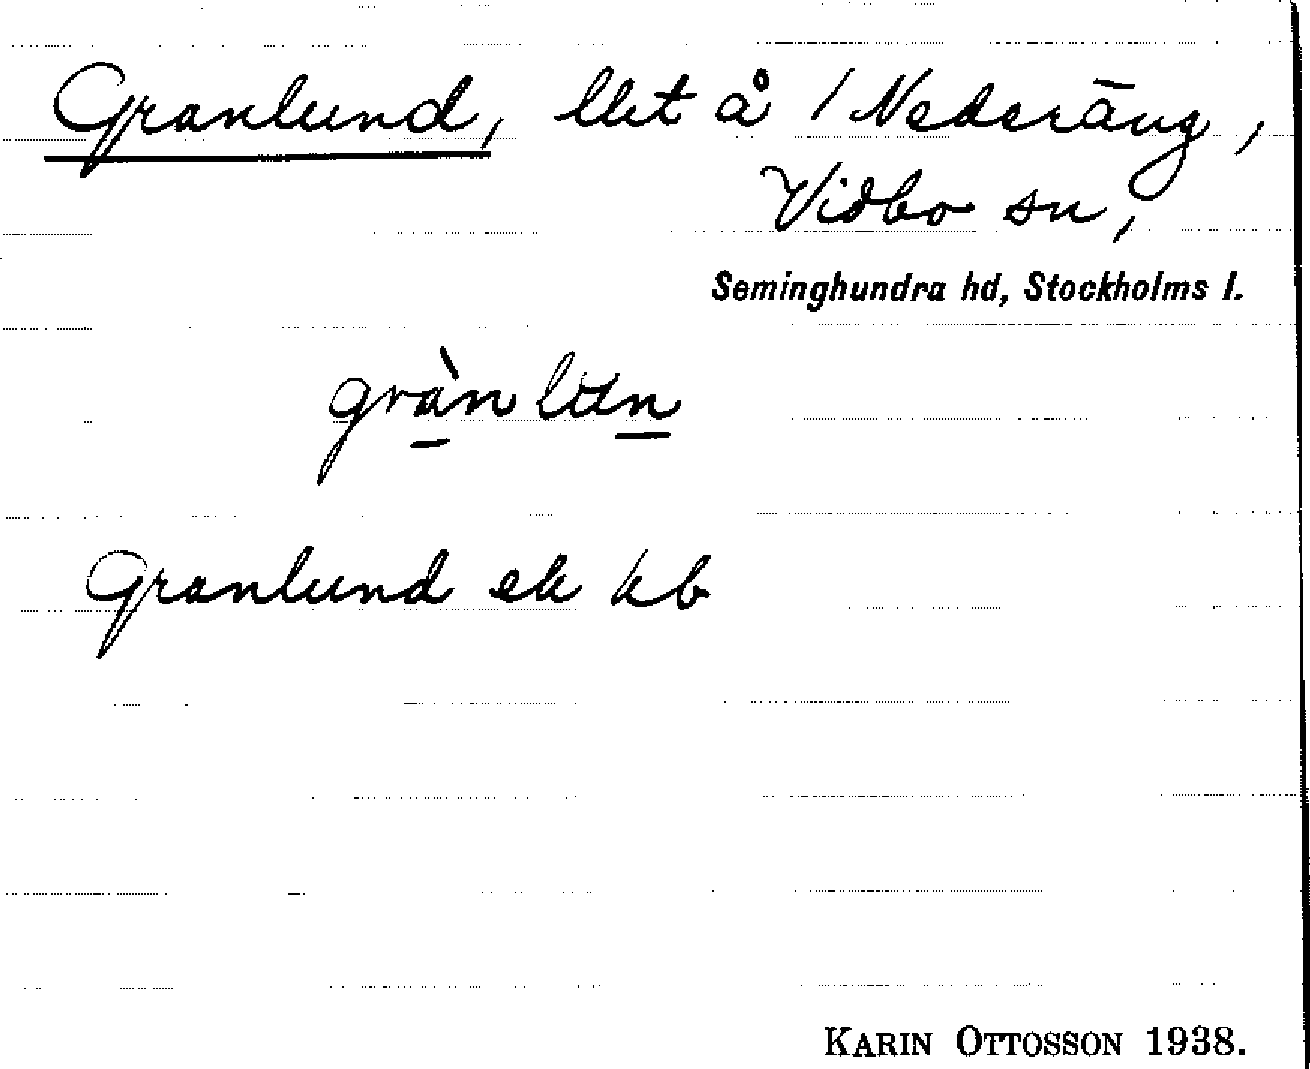 Granlund, llt å 1 Nederäng,
Vidbo sn,
Seminghundra hd, Stockholms l.
grànlun
Granlund ek kb
KARIN OTTOSSON 1938.